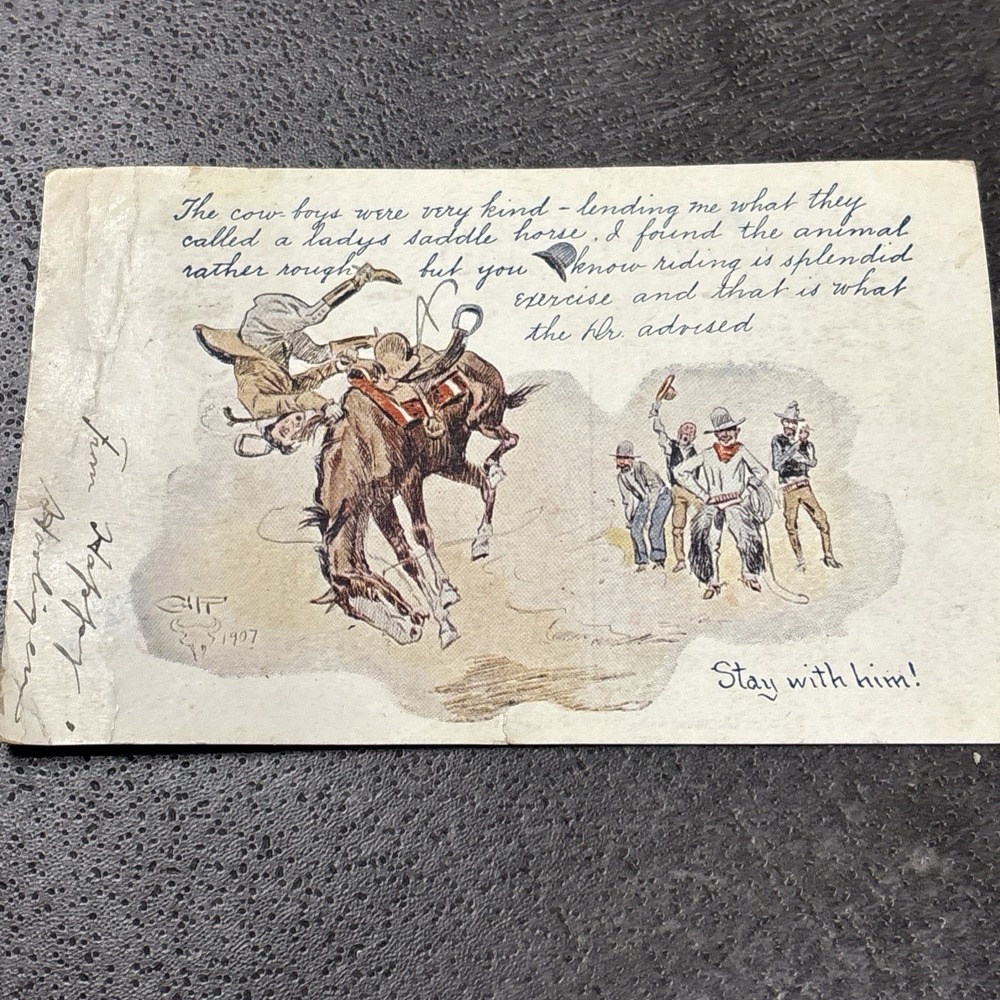 The cow-boys were very kind - lending me what they
called a ladys saddle horse. I found the animal
rather rough but you know riding is splendid
exercise and that is what
the Dr. advised
Stay with him!
CMR
1907
from Happy